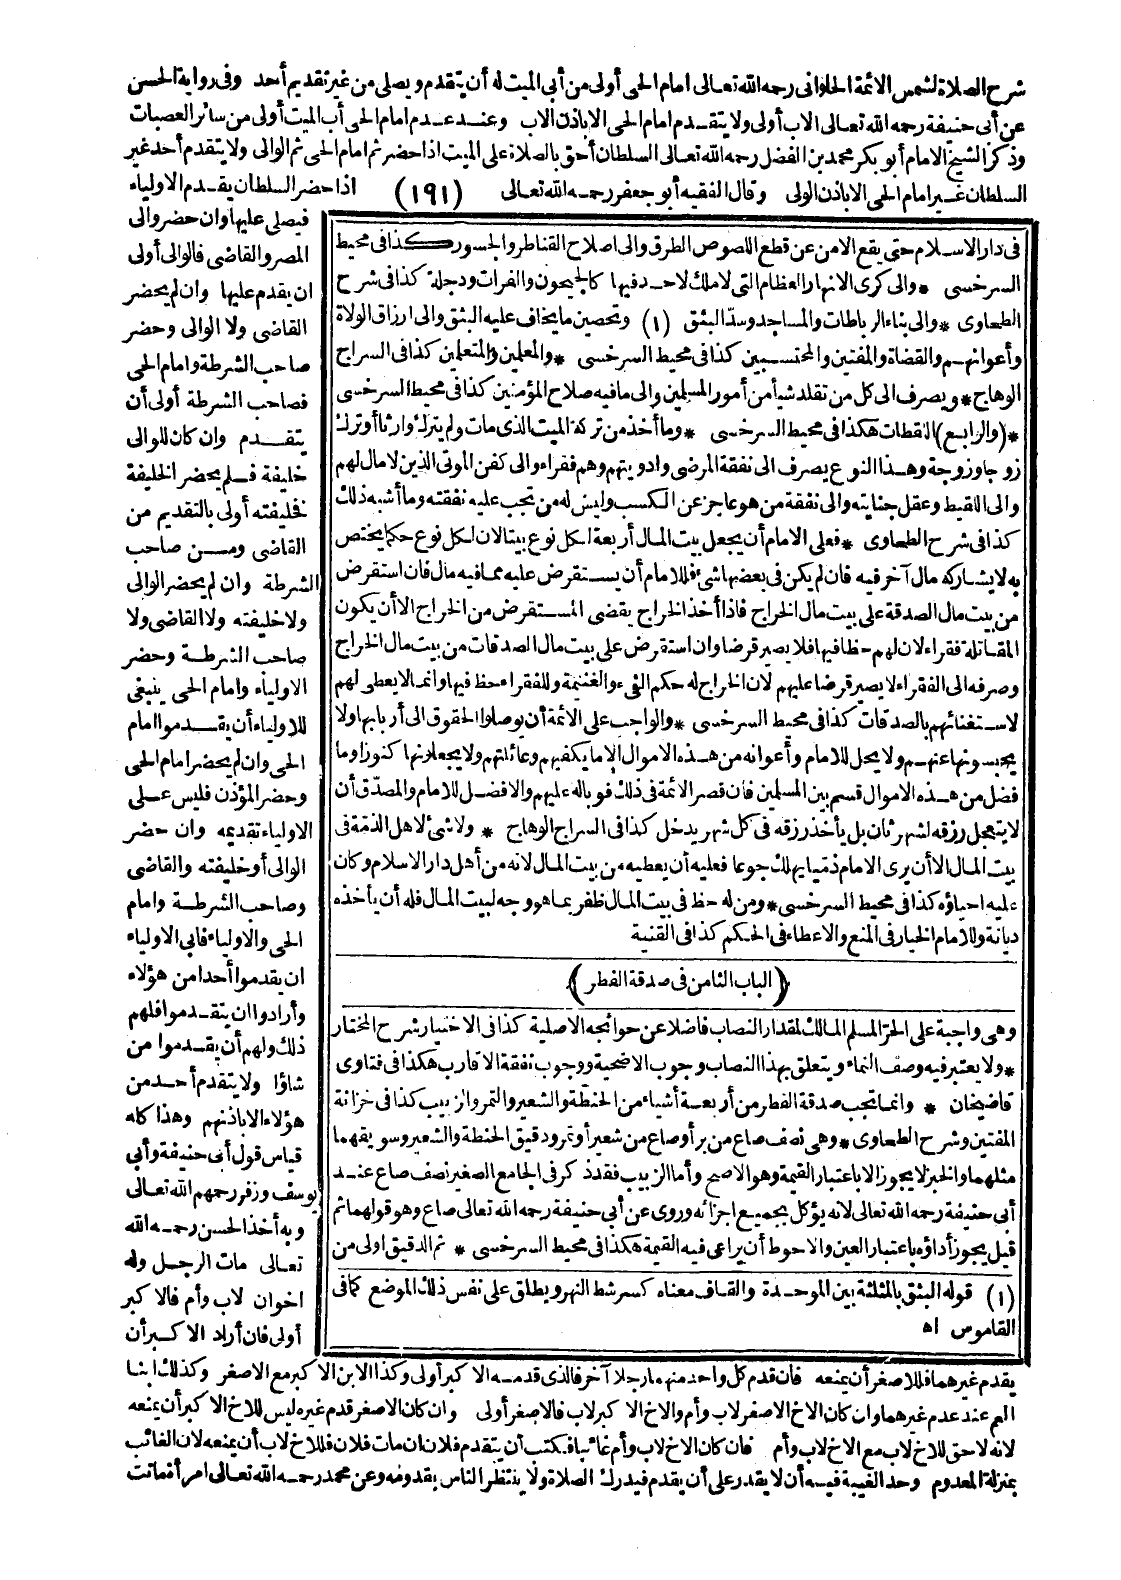 شرح الصلاة لشمس الائمة الحلوانى رحمه الله تعالى امام الحى أولى من أبى الميت له أن يتقدم ويصلى من غير تقديم أحد وفى رواية الحسن
عن أبى حنيفة رحمه الله تعالى الاب أولى ولا يتقدم امام الحى الا باذن الاب وعند عدم امام الحى أب الميت أولى من سائر العصبات
وذكر الشيخ الامام أبو بكر محمد بن الفضل رحمه الله تعالى السلطان أحق بالصلاة على الميت اذا حضر ثم امام الحى ثم الوالى ولا يتقدم أحد غير
السلطان غير امام الحى الا باذن الولى وقال الفقيه أبو جعفر رحمه الله تعالى (١٩١) اذا حضر السلطان يقدم الاولياء
فيصلى عليها وان حضر والى
المصر والقاضى فالوالى أولى
ان يقدم عليها وان لم يحضر
القاضى ولا الوالى وحضر
صاحب الشرطة وامام الحى
فصاحب الشرطة أولى أن
يتقدم وان كان للوالى
خليفة فلم يحضر الخليفة
فخليفته أولى بالتقديم من
القاضى ومن صاحب
الشرطة وان لم يحضر الوالى
ولا خليفته ولا القاضى ولا
صاحب الشرطة وحضر
الاولياء وامام الحى ينبغى
للاولياء أن يقدموا امام
الحى وان لم يحضر امام الحى
وحضر المؤذن فليس على
الاولياء تقديمه وان حضر
الوالى أو خليفته والقاضى
وصاحب الشرطة وامام
الحى والاولياء فابى الاولياء
ان يقدموا أحدا من هؤلاء
وأرادوا ان يتقدموا فلهم
ذلك ولهم أن يقدموا من
شاؤا ولا يتقدم أحد من
هؤلاء الا باذنهم وهذا كله
قياس قول أبى حنيفة وأبى
يوسف وزفر رحمهم الله تعالى
وبه أخذ الحسن رحمه الله
تعالى مات الرجل وله
اخوان لاب وأم فالاكبر
أولى فان أراد الاكبر أن
فى دار الاسلام حتى يقع الامن عن قطع اللصوص الطرق والى اصلاح القناطر والجسور كذا فى محيط
السرخسى * والى كرى الانهار العظام التى لا ملك لاحد فيها كالجيحون والفرات ودجلة كذا فى شرح
الطحاوى * والى بناء الرباطات والمساجد وسد البثق (١) وتحصين ما يخاف عليه البثق والى ارزاق الولاة
وأعوانهم والقضاة والمفتين والمحتسبين كذا فى محيط السرخسى * والمعلمين والمتعلمين كذا فى السراج
الوهاج * ويصرف الى كل من تقلد شيأ من أمور المسلمين والى ما فيه صلاح المؤمنين كذا فى محيط السرخسى
* (والرابع) اللقطات هكذا فى محيط السرخسى * وما أخذ من تركة الميت الذى مات ولم يترك وارثا أو ترك
زوجا وزوجة وهذا النوع يصرف الى نفقة المرضى وادويتهم وهم فقراء والى كفن الموتى الذين لا مال لهم
والى اللقيط وعقل جنايته والى نفقة من هو عاجز عن الكسب وليس له من تجب عليه نفقته وما أشبه ذلك
كذا فى شرح الطحاوى * فعلى الامام أن يجعل بيت المال أربعة لكل نوع بيتا لان لكل نوع حكما يختص
به لا يشاركه مال آخر فيه فان لم يكن فى بعضها شئ فللامام أن يستقرض عليه مما فيه مال فان استقرض
من بيت مال الصدقة على بيت مال الخراج فاذا أخذ الخراج يقضى المستقرض من الخراج الا أن يكون
المقاتلة فقراء لان لهم حظا فيها فلا يصير قرضا وان استقرض على بيت مال الصدقات من بيت مال الخراج
وصرفه الى الفقراء لا يصير قرضا عليهم لان الخراج له حكم الفىء والغنيمة وللفقراء حظ فيها وانما لا يعطى لهم
لاستغنائهم بالصدقات كذا فى محيط السرخسى * والواجب على الائمة أن يوصلوا الحقوق الى أربابها ولا
يحبسونها عنهم ولا يحل للامام وأعوانه من هذه الاموال الا ما يكفيهم وعائلتهم ولا يجعلونها كنوزا وما
فضل من هذه الاموال قسم بين المسلمين فان قصر الائمة فى ذلك فوباله عليهم والافضل للامام والمصدّق أن
لا يتعجل رزقه لشهر ثان بل يأخذ رزقه فى كل شهر يدخل كذا فى السراج الوهاج * ولا شئ لاهل الذمة فى
بيت المال الا أن يرى الامام ذميا يهلك جوعا فعليه أن يعطيه من بيت المال لانه من أهل دار الاسلام وكان
عليه احياؤه كذا فى محيط السرخسى * ومن له حظ فى بيت المال ظفر بما هو وجه لبيت المال فله أن يأخذه
ديانة وللامام الخيار فى المنع والاعطاء فى الحكم كذا فى القنية
(الباب الثامن فى صدقة الفطر)
وهى واجبة على الحرّ المسلم المالك لمقدار النصاب فاضلا عن حوائجه الاصلية كذا فى الاختيار شرح المختار
* ولا يعتبر فيه وصف النماء ويتعلق بهذا النصاب وجوب الاضحية ووجوب نفقة الاقارب هكذا فى فتاوى
قاضيخان * وانما تجب صدقة الفطر من أربعة أشياء من الحنطة والشعير والتمر والزبيب كذا فى خزانة
المفتين وشرح الطحاوى * وهى نصف صاع من بر أو صاع من شعير أو تمر ودقيق الحنطة والشعير وسويقهما
مثلهما والخبز لا يجوز الا باعتبار القيمة وهو الاصح وأما الزبيب فقد ذكر فى الجامع الصغير نصف صاع عند
أبى حنيفة رحمه الله تعالى لانه يؤكل بجميع اجزائه وروى عن أبى حنيفة رحمه الله تعالى صاع وهو قولهما ثم
قيل يجوز أداؤه باعتبار العين والاحوط أن يراعى فيه القيمة هكذا فى محيط السرخسى * ثم الدقيق اولى من
(١) قوله البثق بالمثلثة بين الموحدة والقاف معناه كسر شط النهر ويطلق على نفس ذلك الموضع كما فى
القاموس اه
يقدم غيرهما فللاصغر أن يمنعه فان قدم كل واحد منهما رجلا آخر فالذى قدمه الاكبر أولى وكذا الابن الاكبر مع الاصغر وكذلك ابنا
العم عند عدم غيرهما وان كان الاخ الاصغر لاب وأم والاخ الاكبر لاب فالاصغر أولى وان كان الاصغر قدم غيره ليس للاخ الاكبر أن يمنعه
لانه لا حق للاخ لاب مع الاخ لاب وأم فان كان الاخ لاب وأم غائبا فكتب أن يتقدم فلان ان مات فلان فللاخ لاب أن يمنعه لان الغائب
بمنزلة المعدوم وحد الغيبة فيه أن لا يقدر على أن يقدم فيدرك الصلاة ولا ينتظر الناس بقدومه وعن محمد رحمه الله تعالى امرأة ماتت